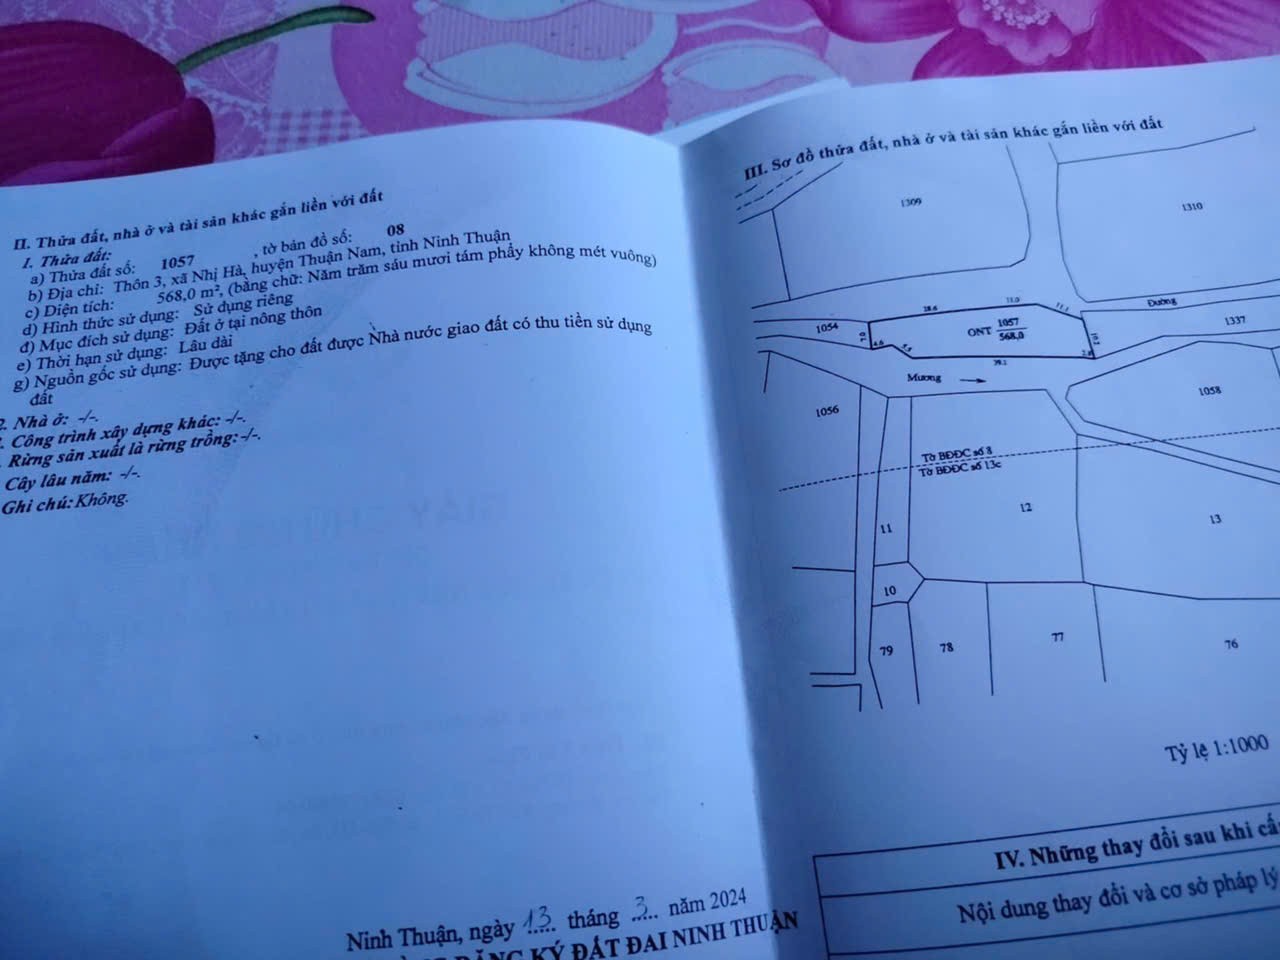 II. Thửa đất, nhà ở và tài sản khác gắn liền với đất
1. Thửa đất:
a) Thửa đất số: 1057 , tờ bản đồ số: 08
b) Địa chỉ: Thôn 3, xã Nhị Hà, huyện Thuận Nam, tỉnh Ninh Thuận
c) Diện tích: 568,0 m², (bằng chữ: Năm trăm sáu mươi tám phẩy không mét vuông)
d) Hình thức sử dụng: Sử dụng riêng
đ) Mục đích sử dụng: Đất ở tại nông thôn
e) Thời hạn sử dụng: Lâu dài
g) Nguồn gốc sử dụng: Được tặng cho đất được Nhà nước giao đất có thu tiền sử dụng
đất
2. Nhà ở: -/-.
. Công trình xây dựng khác: -/-.
Rừng sản xuất là rừng trồng: -/-.
Cây lâu năm: -/-.
Ghi chú: Không.
Ninh Thuận, ngày 13 tháng 3 năm 2024
ĐĂNG KÝ ĐẤT ĐAI NINH THUẬN
III. Sơ đồ thửa đất, nhà ở và tài sản khác gắn liền với đất
1309
1310
Đường
28.6
11.0
11.1
1054
7.0
ONT 1057
568,0
10.2
1337
4.6
39.1
2.8
Mương
1056
1058
Tờ BĐĐC số 8
Tờ BĐĐC số 13c
12
11
13
10
79
78
77
76
Tỷ lệ 1:1000
IV. Những thay đổi sau khi cấ
Nội dung thay đổi và cơ sở pháp lý